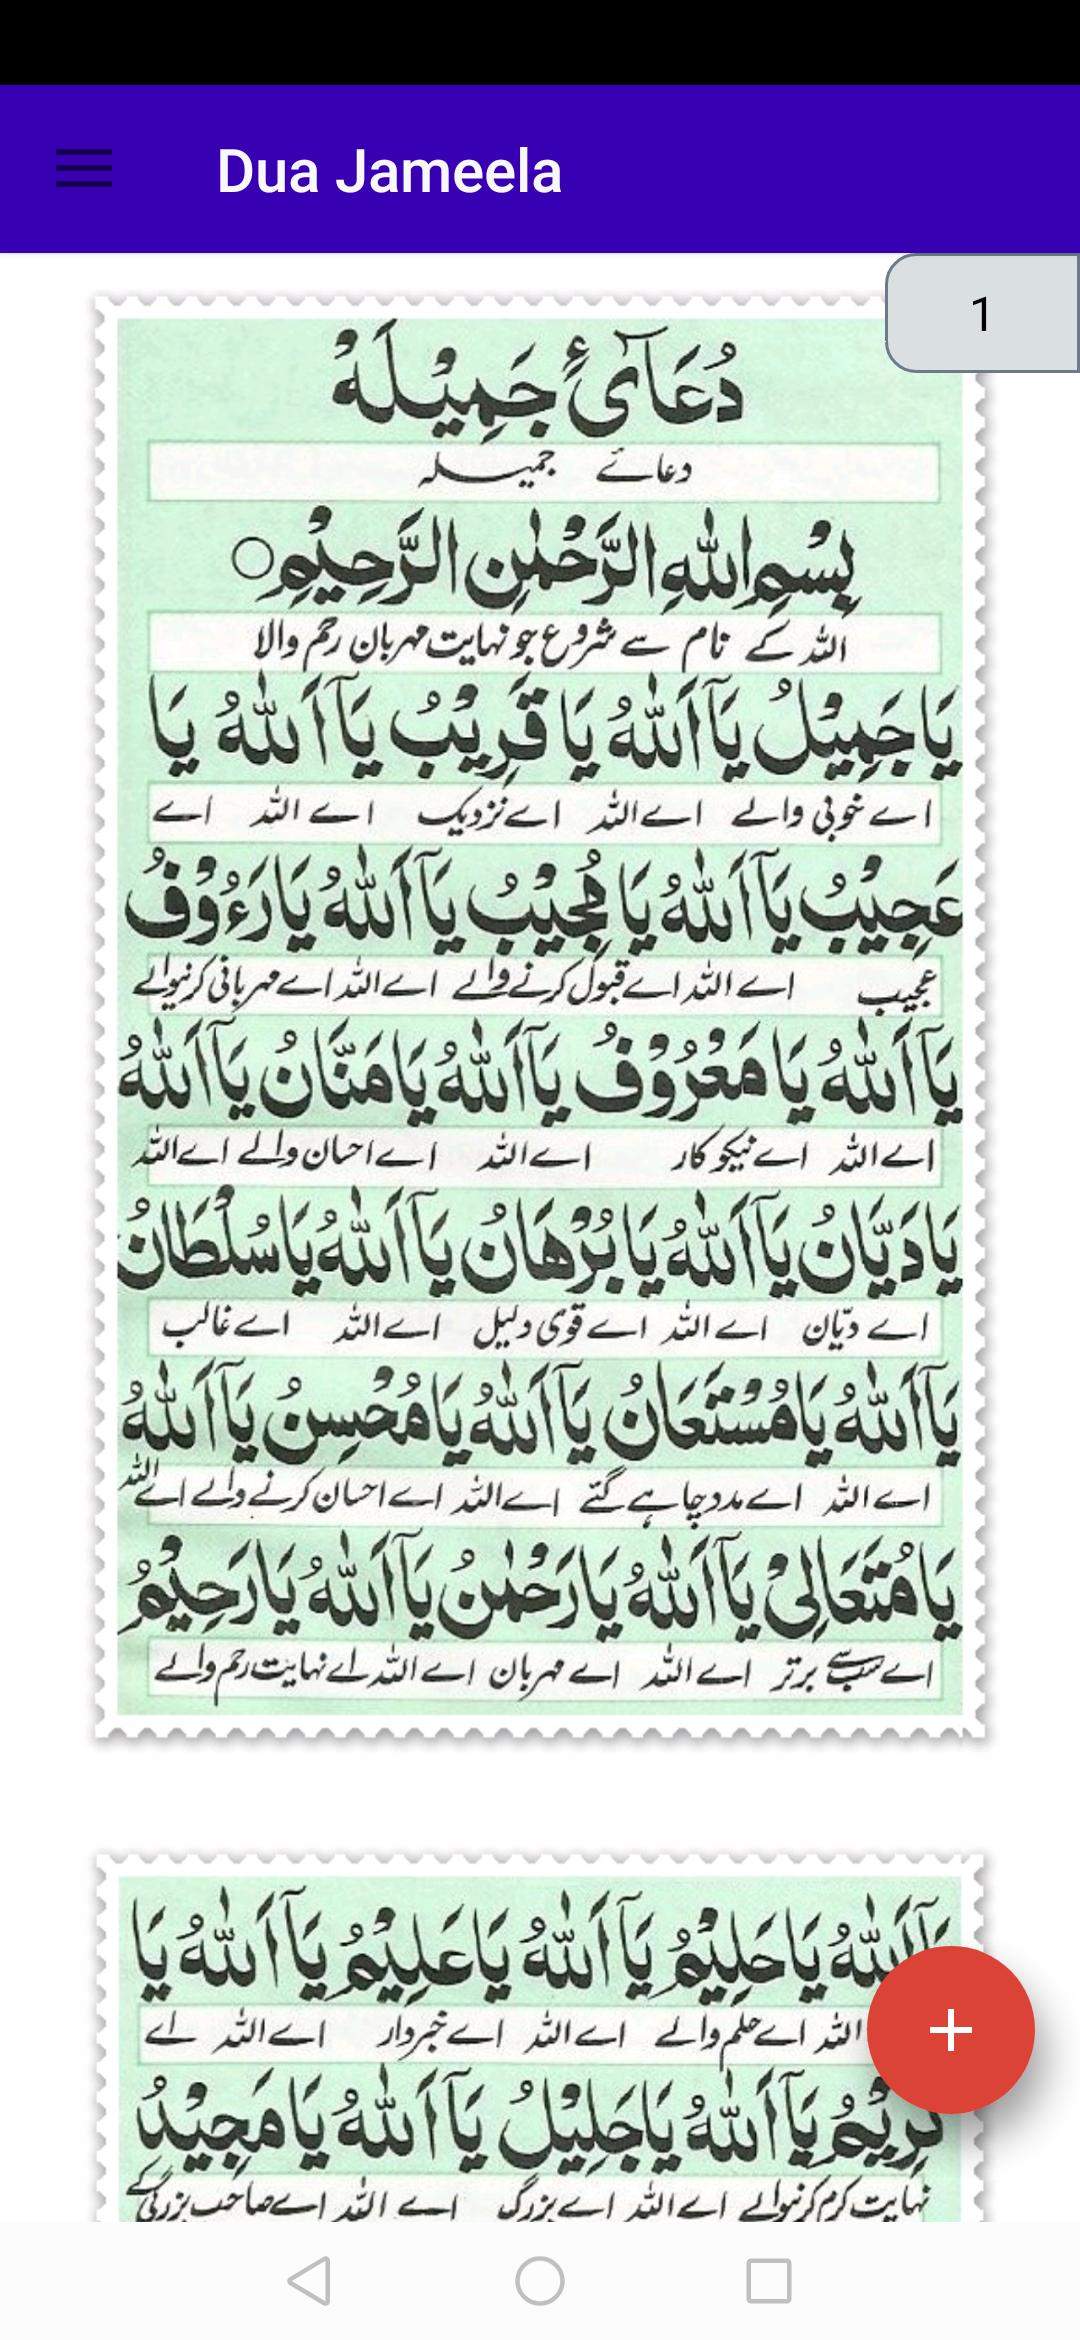 Dua Jameela
1
دُعَآئُ جَمِيْلَهْ
دعائے جمیلہ
بِسْمِ اللّٰهِ الرَّحْمٰنِ الرَّحِيْمِ
اللہ کے نام سے شروع جو نہایت مہربان رحم والا
يَا جَمِيْلُ يَآ اَللّٰهُ يَا قَرِيْبُ يَآ اَللّٰهُ يَا
اے خوبی والے اے اللہ اے نزدیک اے اللہ اے
عَجِيْبُ يَآ اَللّٰهُ يَا مُجِيْبُ يَآ اَللّٰهُ يَا رَءُوْفُ
عجیب اے اللہ اے قبول کرنے والے اے اللہ اے مہربانی کرنیوالے
يَآ اَللّٰهُ يَا مَعْرُوْفُ يَآ اَللّٰهُ يَا مَنَّانُ يَآ اَللّٰهُ
اے اللہ اے نیکو کار اے اللہ اے احسان والے اے اللہ
يَا دَيَّانُ يَآ اَللّٰهُ يَا بُرْهَانُ يَآ اَللّٰهُ يَا سُلْطَانُ
اے دیّان اے اللہ اے قوی دلیل اے اللہ اے غالب
يَآ اَللّٰهُ يَا مُسْتَعَانُ يَآ اَللّٰهُ يَا مُحْسِنُ يَآ اَللّٰهُ
اے اللہ اے مدد چاہے گئے اے اللہ اے احسان کرنے والے اے اللہ
يَا مُتَعَالِىْ يَآ اَللّٰهُ يَا رَحْمٰنُ يَآ اَللّٰهُ يَا رَحِيْمُ
اے سب سے برتر اے اللہ اے مہربان اے اللہ اے نہایت رحم والے
يَآ اَللّٰهُ يَا حَلِيْمُ يَآ اَللّٰهُ يَا عَلِيْمُ يَآ اَللّٰهُ يَا
اللہ اے حلم والے اے اللہ اے خبردار اے اللہ اے
كَرِيْمُ يَآ اَللّٰهُ يَا جَلِيْلُ يَآ اَللّٰهُ يَا مَجِيْدُ
نہایت کرم کرنیوالے اے اللہ اے بزرگ اے اللہ اے صاحب بزرگی کے